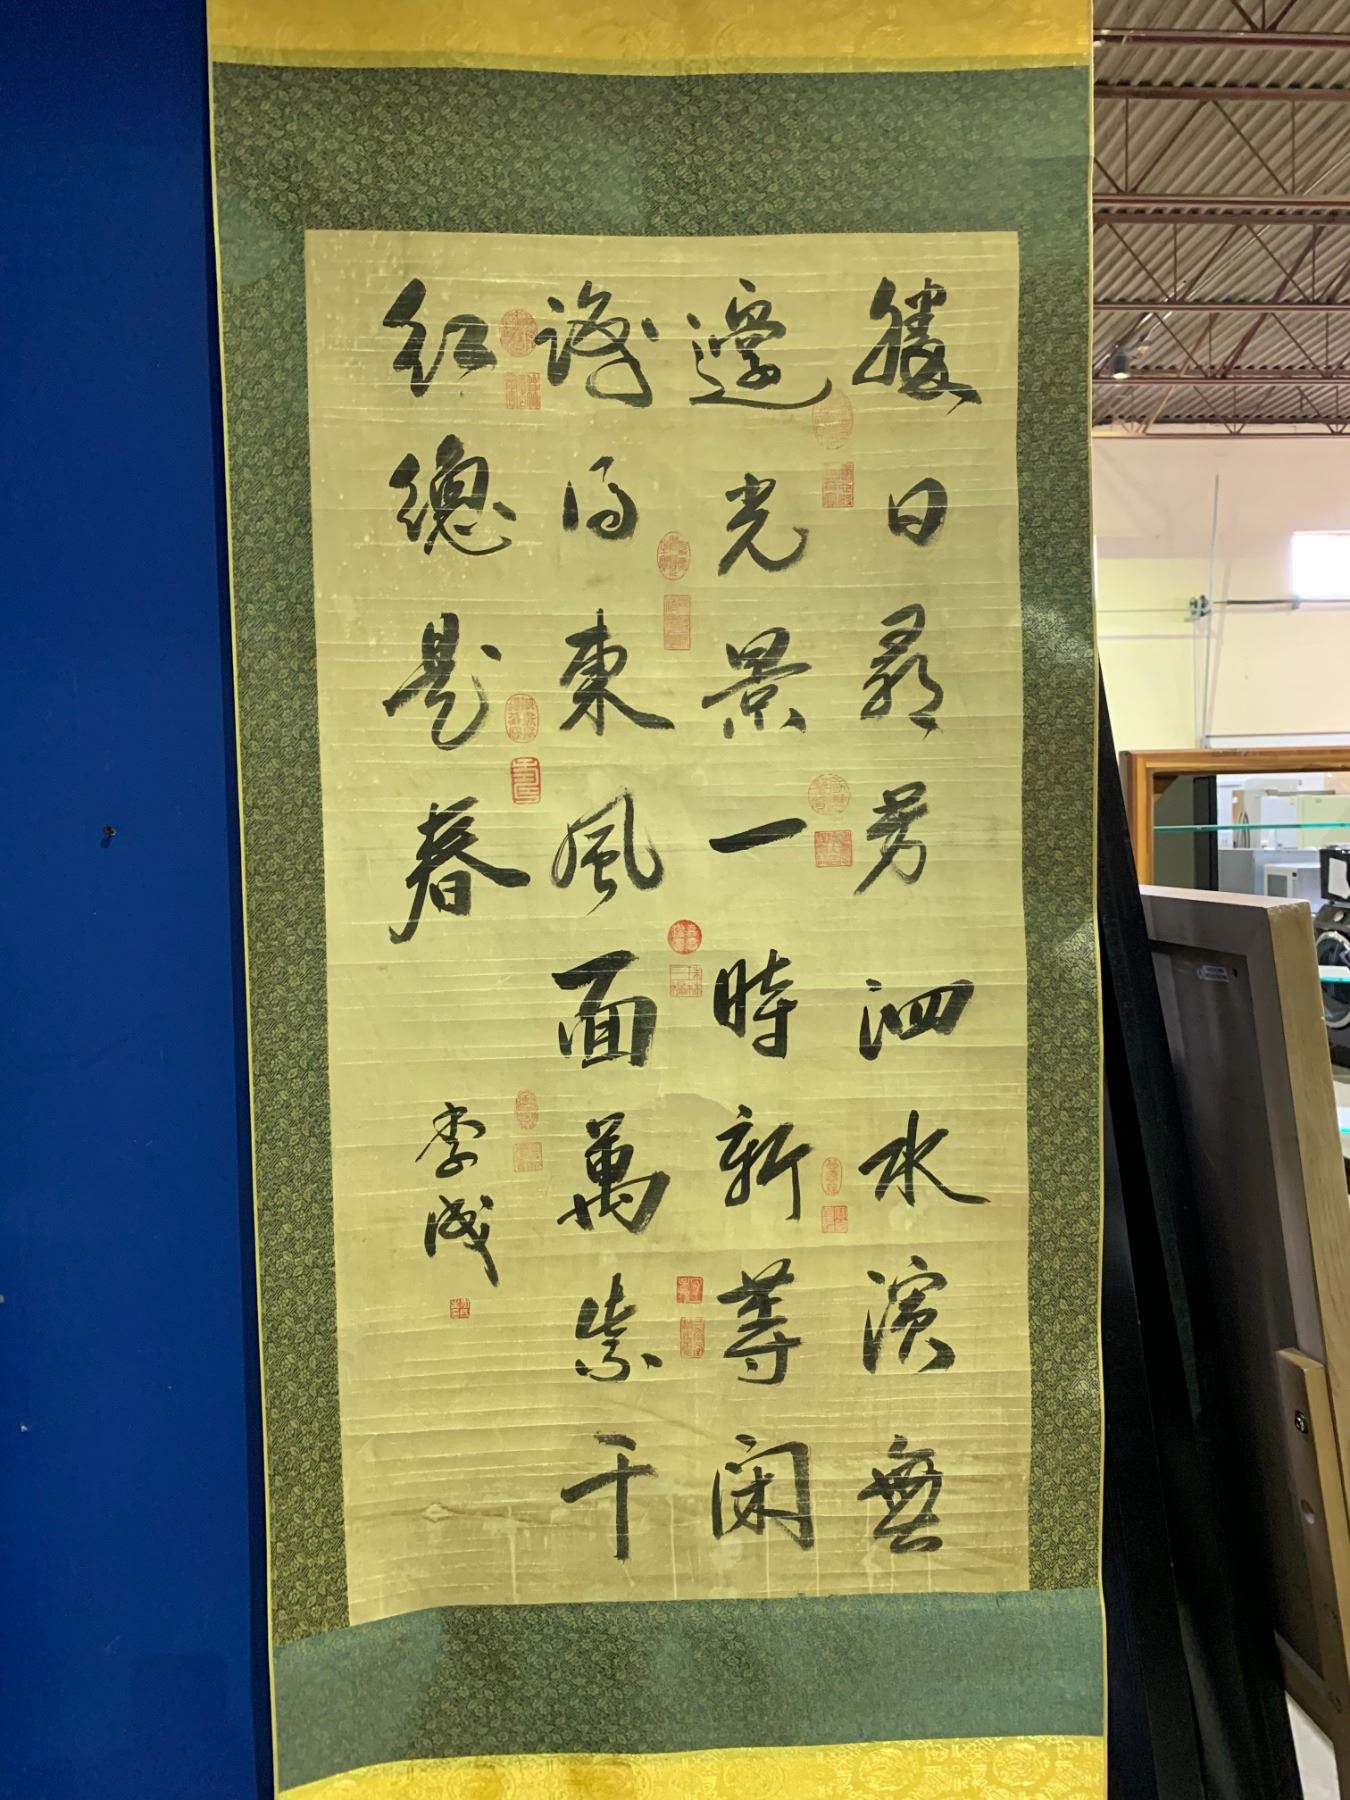 勝日尋芳泗水濱無
邊光景一時新等閑
識得東風面萬紫千
紅總是春
李成